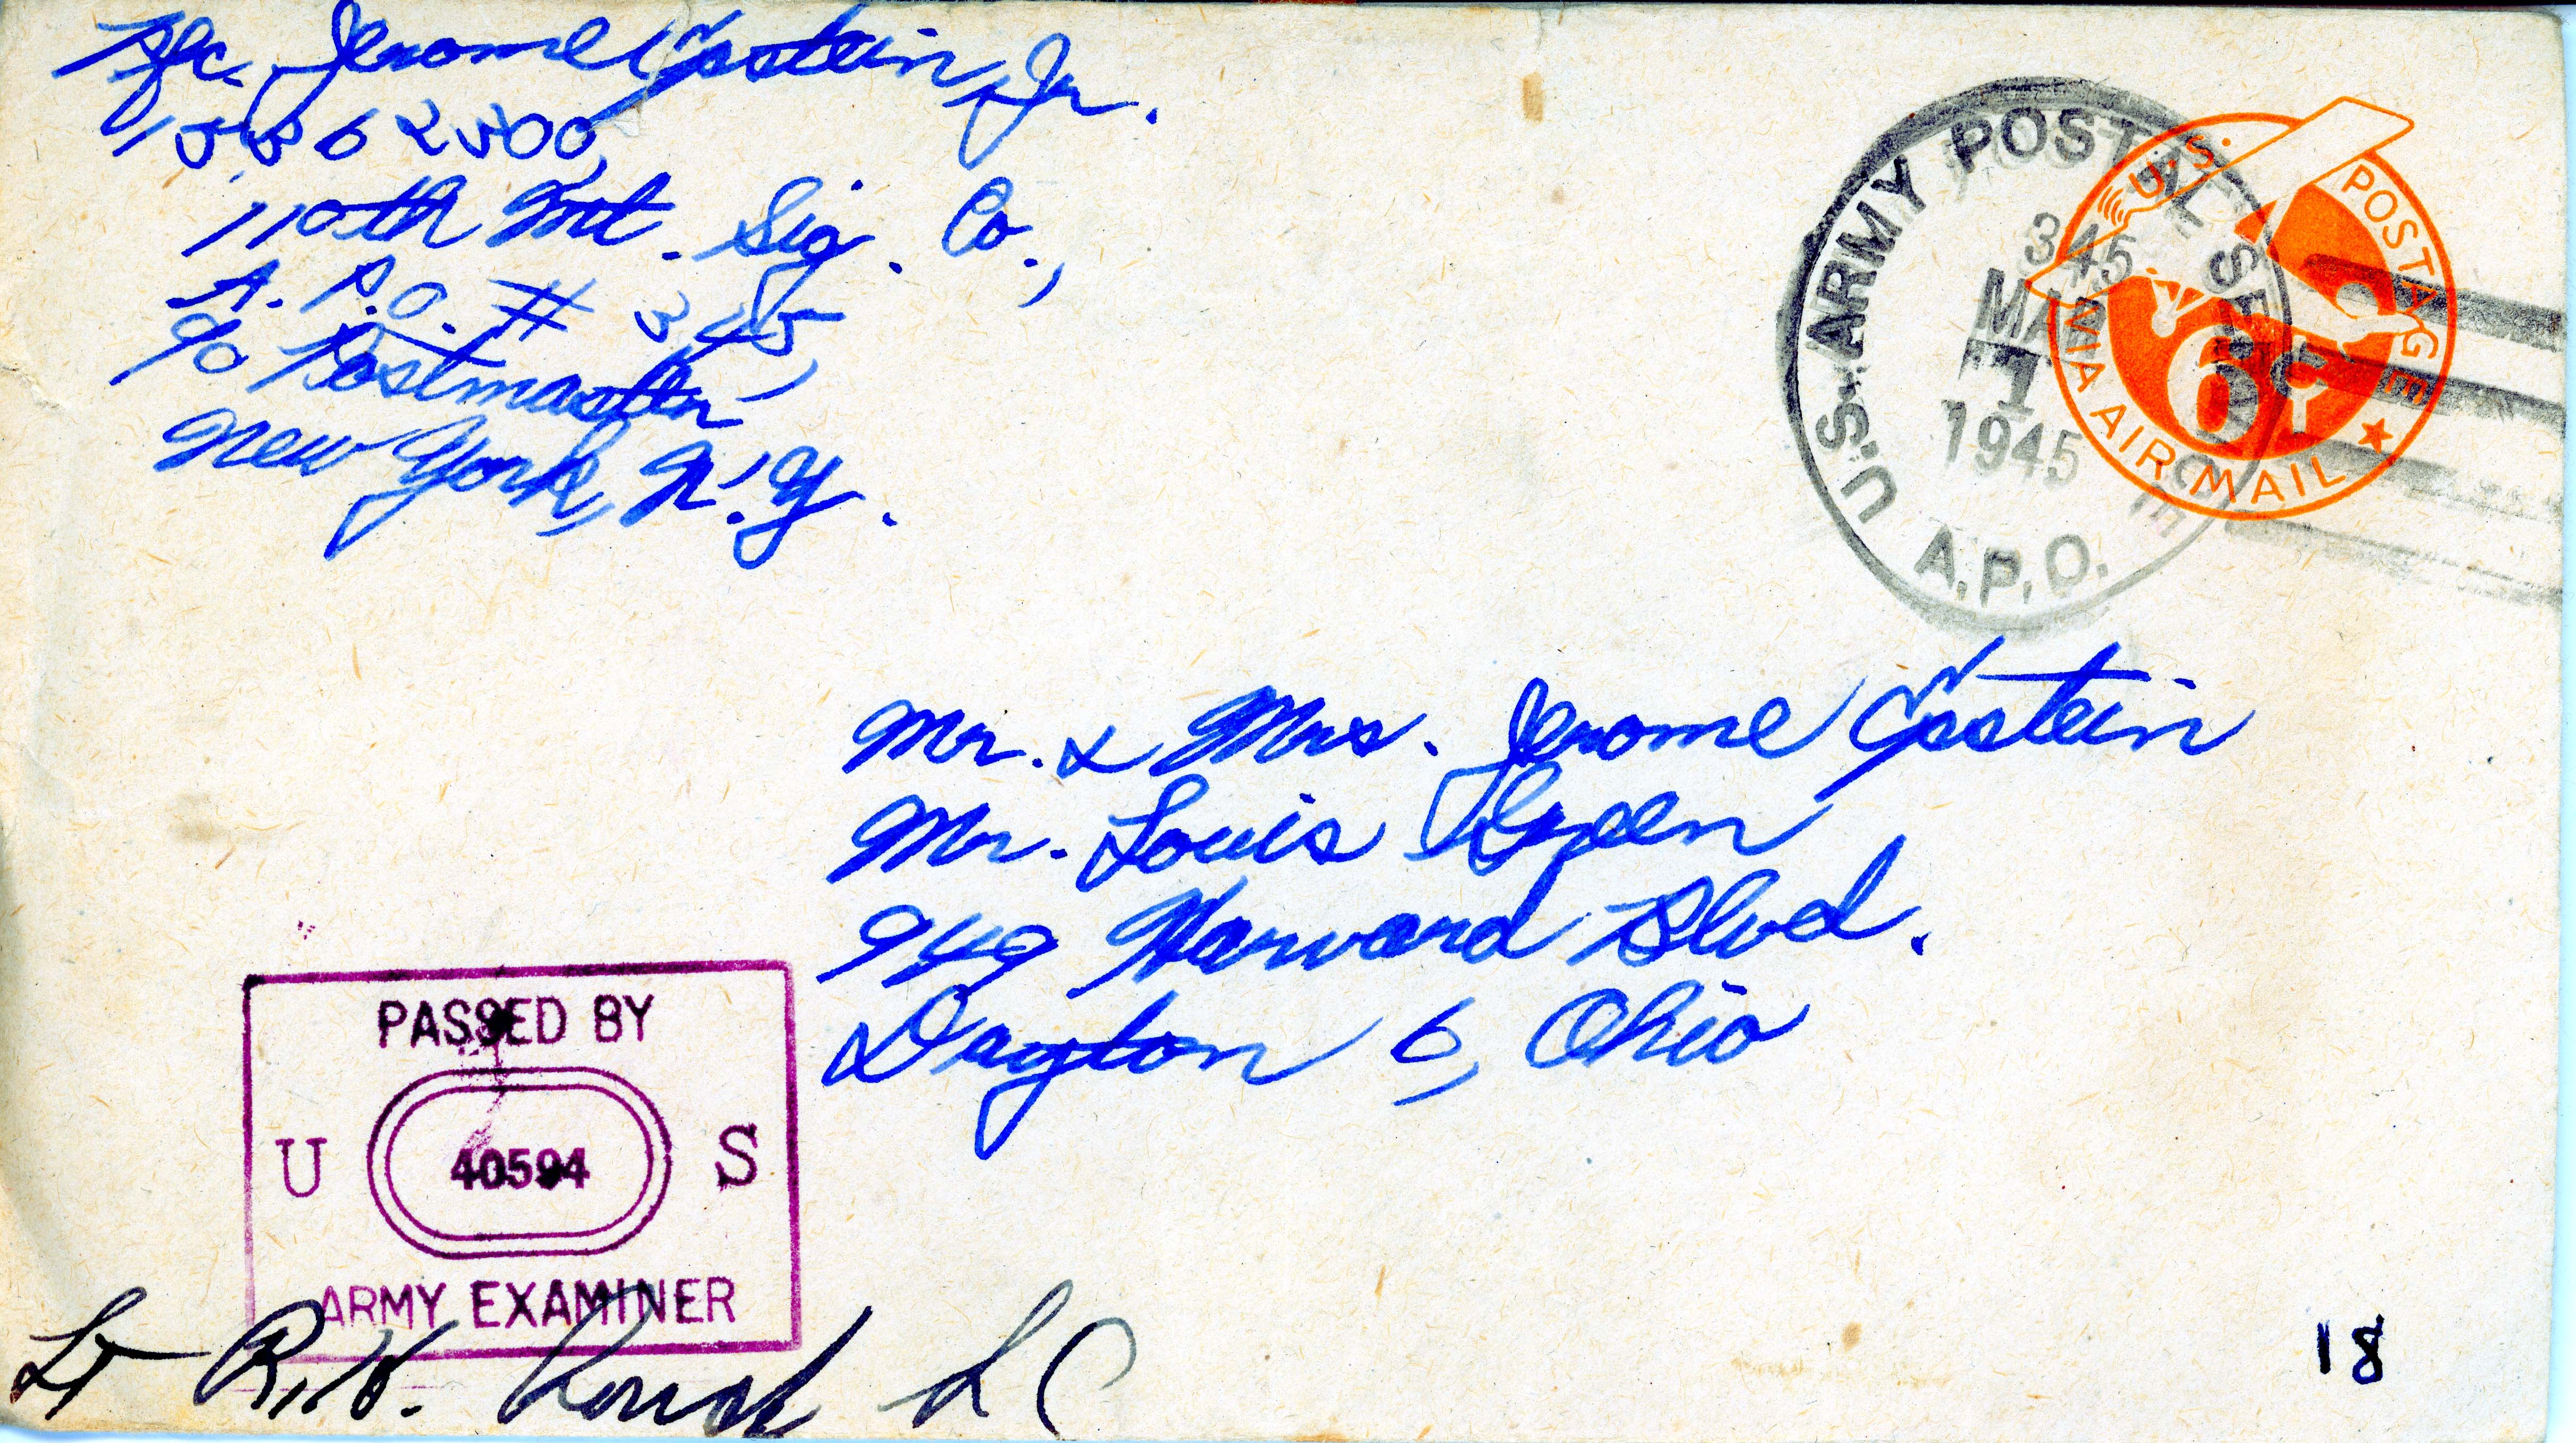 Pfc. Jerome Epstein, Jr.
110th Mt. Sig. Co.,
A.P.O. # 345,
c/o Postmaster
New York, N.Y.
U.S. ARMY POSTAL SERVICE
345
MAR
1
1945
A.P.O.
U.S. POSTAGE
6¢
VIA AIR MAIL
Mr. & Mrs. Jerome Epstein
Mr. Louis Green
949 Harvard Blvd.
Dayton 6, Ohio
PASSED BY
U 40594 S
ARMY EXAMINER
Lt R.H.
18